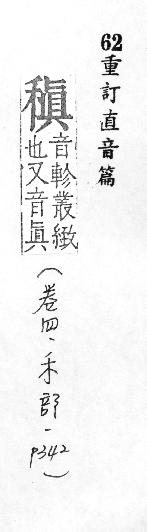 62重訂直音篇
稹音軫叢緻
也又音眞
(卷四、禾部、P342)